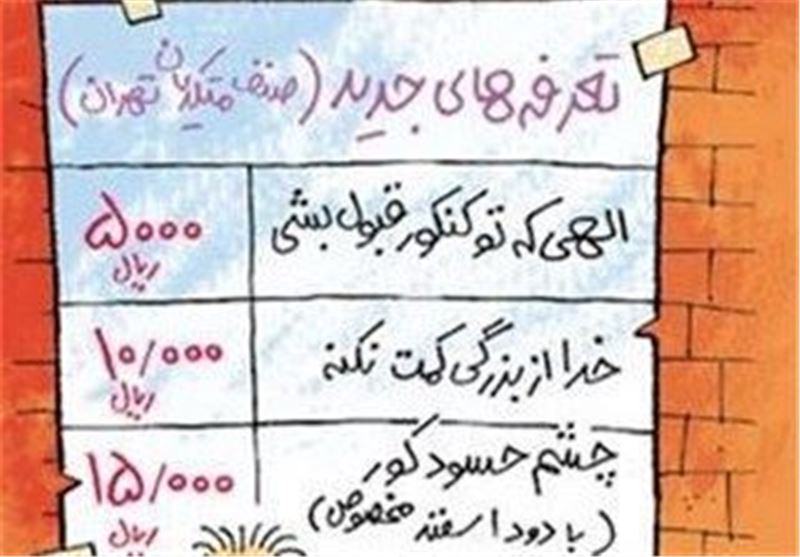 تعرفه های جدید (صنف متکدیان تهران)
الهی که تو کنکور قبول بشی
۵۰۰۰
ریال
خدا از بزرگی کمت نکنه
۱۰/۰۰۰
ریال
چشم حسود کور
(با دود اسفند مخصوص)
۱۵/۰۰۰
ریال